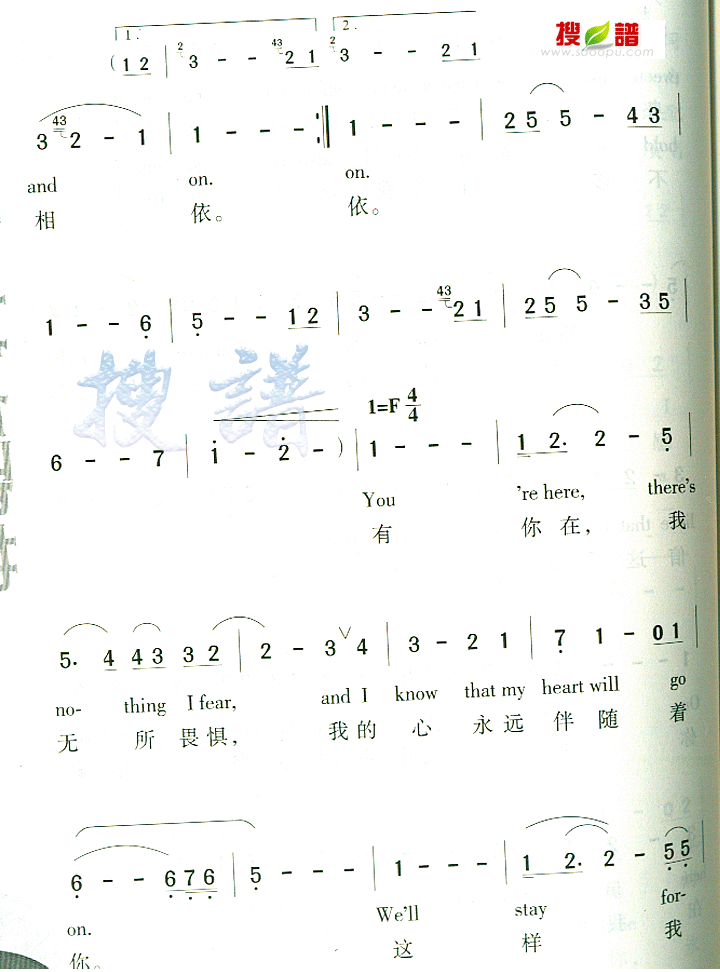 搜谱
www.sooopu.com
1. 2.
( 1 2 | 2 3 - - 43 2 1 | 2 3 - - 2 1
3 43 2 - 1 | 1 - - - :| 1 - - - | 2 5 5 - 4 3 |
and on. on.
相 依。 依。
1 - - 6 | 5 - - 1 2 | 3 - - 43 2 1 | 2 5 5 - 3 5 |
搜 譜
1=F 4/4
6 - - 7 | 1 - 2 - ) | 1 - - - | 1 2. 2 - 5 |
You 're here, there's
有 你 在， 我
5. 4 4 3 3 2 | 2 - 3 V 4 | 3 - 2 1 | 7 1 - 0 1 |
no- thing I fear, and I know that my heart will go
无 所 畏 惧， 我 的 心 永 远 伴 随 着
6 - - 6 7 6 | 5 - - - | 1 - - - | 1 2. 2 - 5 5 |
on. We'll stay for-
你。 这 样 我